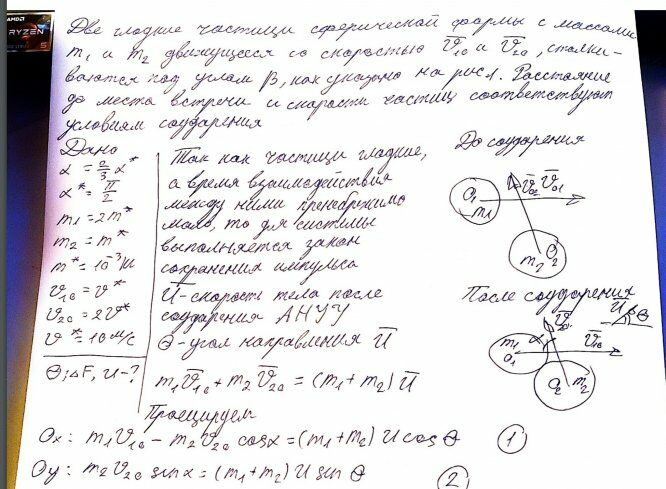 AMD
RYZEN
5
Две гладкие частицы сферической формы с массами
m₁ и m₂ движущееся со скоростью V̄₁₀ и V̄₂₀, сталки-
ваются под углом β, как указано на рис 1. Расстояние
до места встречи и скорости частиц соответствуют
условиям соударения
Дано
α = 2/3 α*
α* = π/2
m₁ = 2m*
m₂ = m*
m* = 10⁻³ кг
V₁₀ = V*
V₂₀ = 2V*
V* = 10 м/с
Θ; ΔF, U - ?
Так как частицы гладкие,
а время взаимодействия
между ними пренебрежимо
мало, то для системы
выполняется закон
сохранения импульса
Ū - скорость тела после
соударения АНУУ
Θ - угол направления Ū
m₁V̄₁₀ + m₂V̄₂₀ = (m₁ + m₂) Ū
Проецируем
Ox: m₁V₁₀ - m₂V₂₀ cosα = (m₁ + m₂) U cos Θ ①
Oy: m₂V₂₀ sinα = (m₁ + m₂) U sin Θ ②
До соударения
O₁
m₁
V̄₀₂ V̄₀₁
O₂
m₂
После соударения
Ū
Θ
m₁
O₁
α
V̄₁₀
O₂
m₂